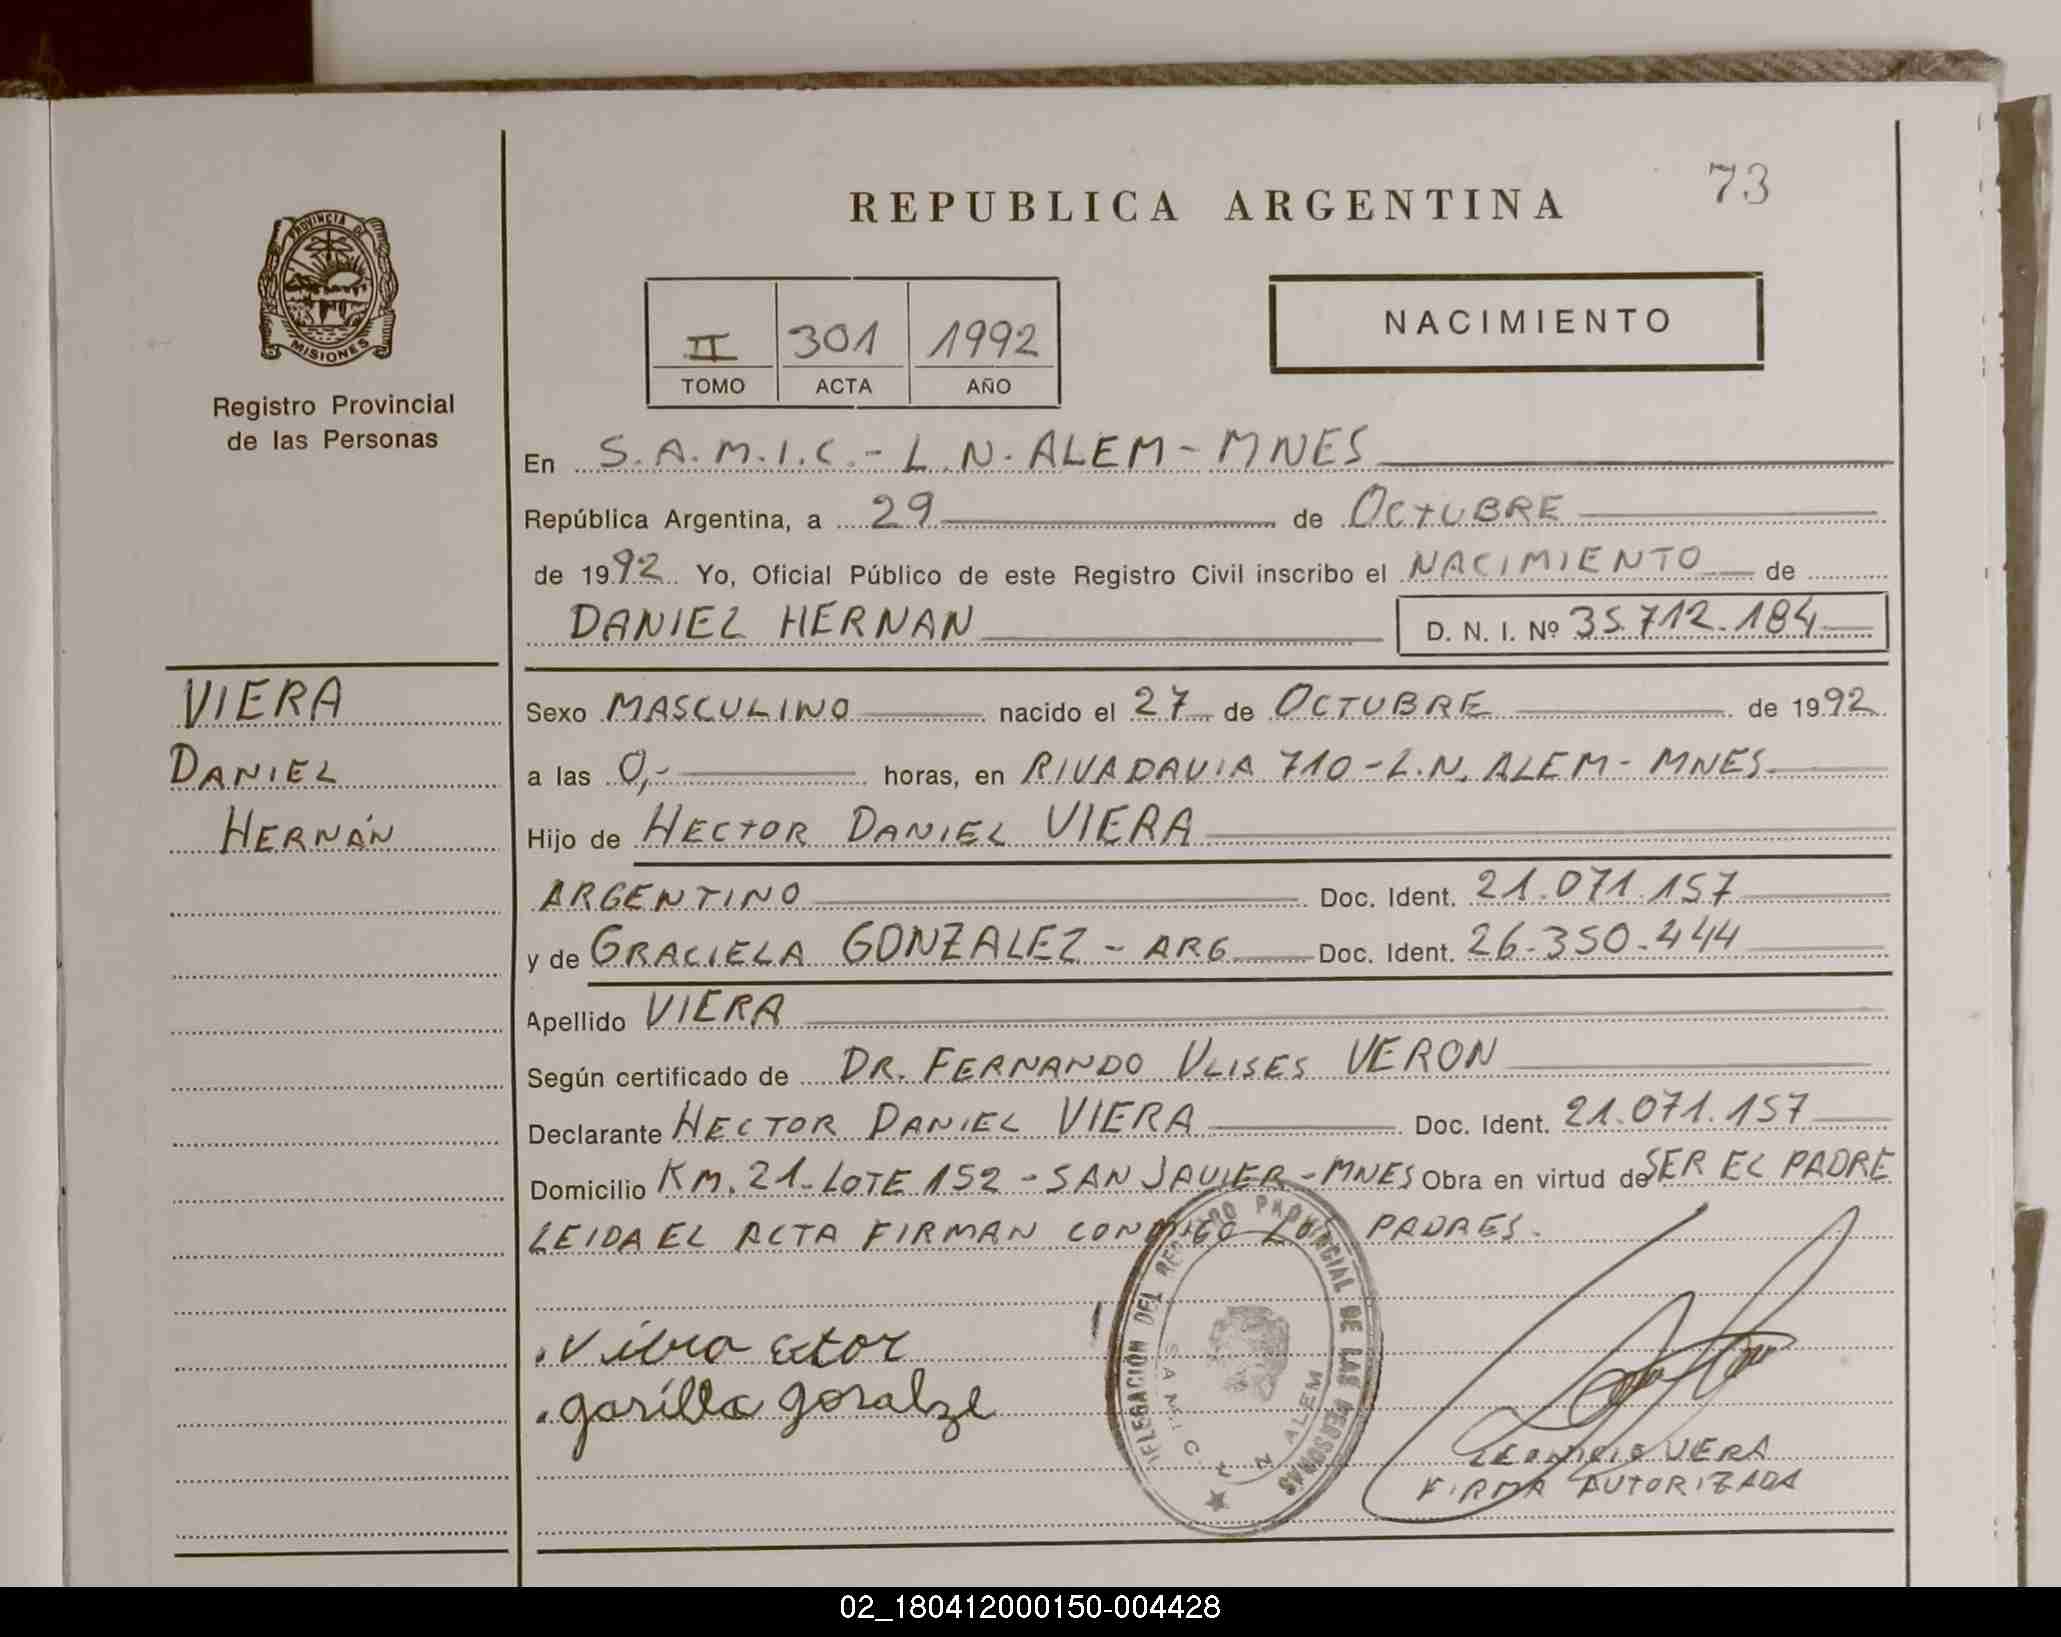 73
REPUBLICA ARGENTINA
PROVINCIA DE
MISIONES
Registro Provincial
de las Personas
II 301 1992
TOMO ACTA AÑO
NACIMIENTO
En S.A.M.I.C.- L.N. ALEM - MNES
República Argentina, a 29 de OCTUBRE
de 1992 Yo, Oficial Público de este Registro Civil inscribo el NACIMIENTO de
DANIEL HERNAN D. N. I. Nº 35.712.184
VIERA
DANIEL
HERNÁN
Sexo MASCULINO nacido el 27 de OCTUBRE de 1992
a las 0,- horas, en RIVADAVIA 710 - L.N. ALEM - MNES
Hijo de HECTOR DANIEL VIERA
ARGENTINO Doc. Ident. 21.071.157
y de GRACIELA GONZALEZ - ARG Doc. Ident. 26.350.444
Apellido VIERA
Según certificado de DR. FERNANDO ULISES VERON
Declarante HECTOR DANIEL VIERA Doc. Ident. 21.071.157
Domicilio KM. 21 - LOTE 152 - SAN JAVIER - MNES Obra en virtud de SER EL PADRE
LEIDA EL ACTA FIRMAN CONMIGO LOS PADRES.
DELEGACIÓN DEL REGISTRO PROVINCIAL DE LAS PERSONAS
ALEM
LEONICIO VERA
FIRMA AUTORIZADA
02_180412000150-004428